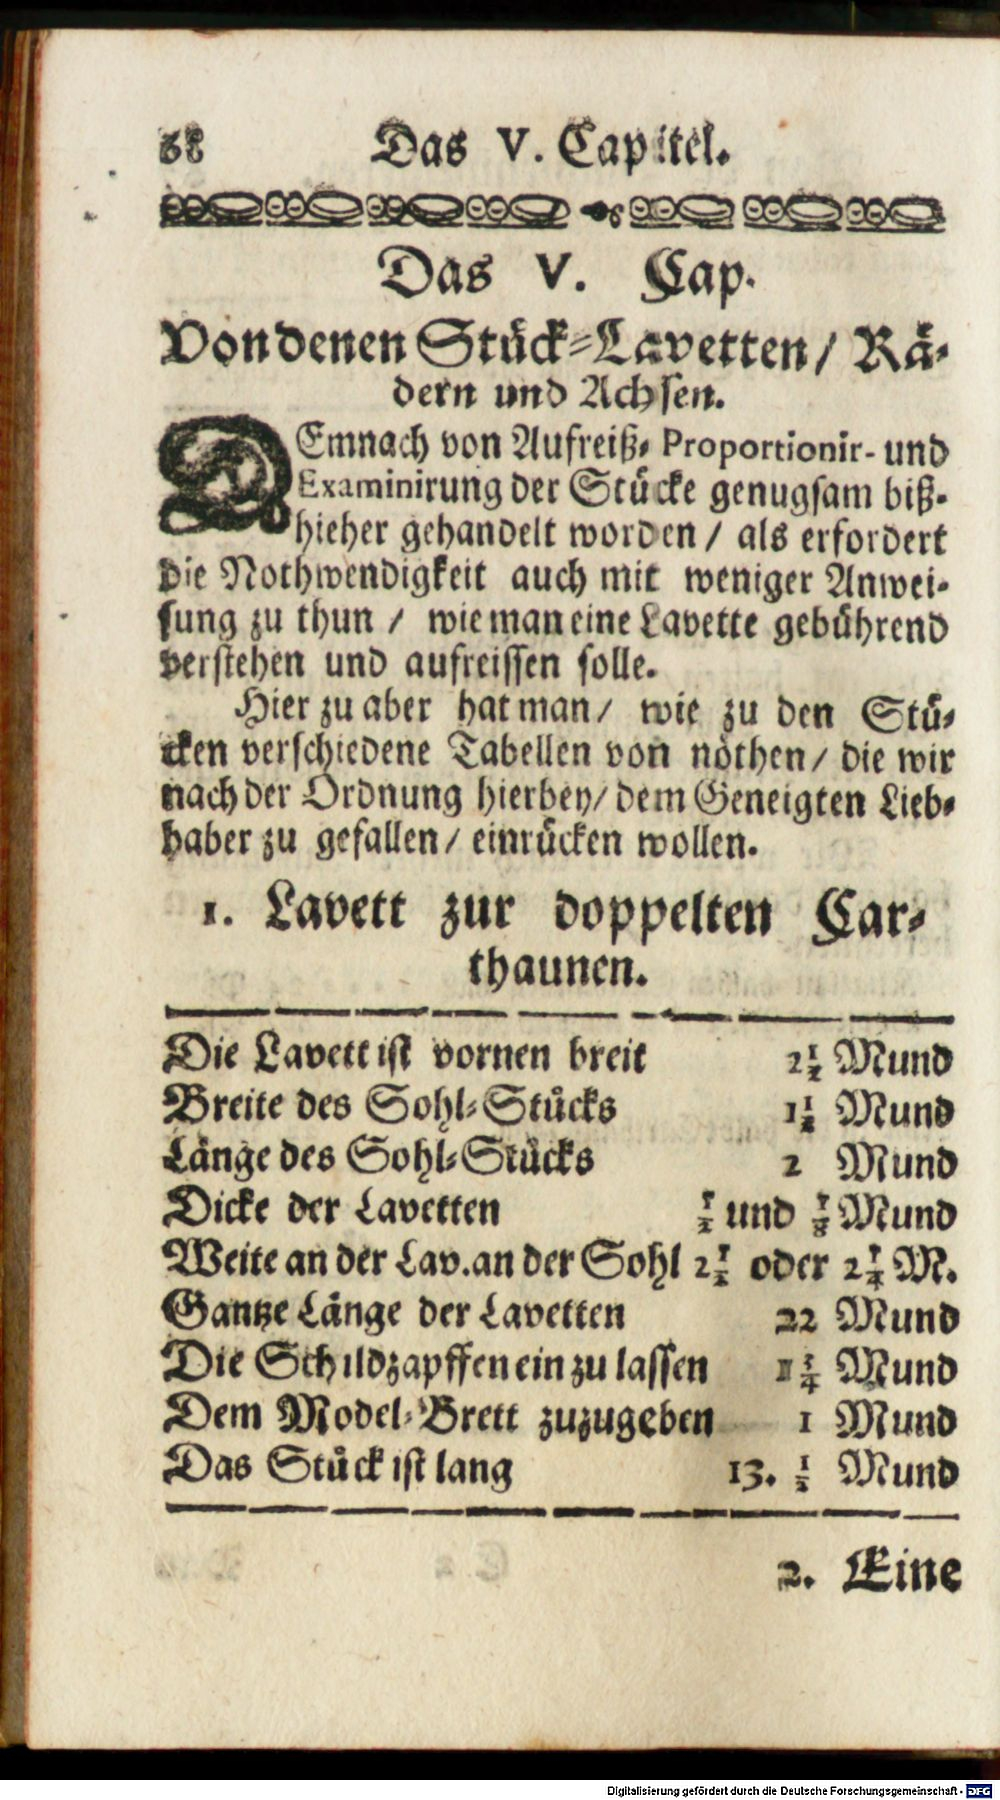 68 Das V. Capitel.
Das V. Cap.
Von denen Stück-Lavetten/ Rä-
dern und Achsen.
DEmnach von Aufreiß- Proportionir- und
Examinirung der Stücke genugsam biß-
hieher gehandelt worden / als erfordert
die Nothwendigkeit auch mit weniger Anwei-
sung zu thun / wie man eine Lavette gebührend
verstehen und aufreissen solle.
Hier zu aber hat man/ wie zu den Stü-
cken verschiedene Tabellen von nöthen/ die wir
nach der Ordnung hierbey/ dem Geneigten Lieb-
haber zu gefallen/ einrücken wollen.
1. Lavett zur doppelten Car-
thaunen.
Die Lavett ist vornen breit 2½ Mund
Breite des Sohl-Stücks 1½ Mund
Länge des Sohl-Stücks 2 Mund
Dicke der Lavetten ½ und ⅞ Mund
Weite an der Lav. an der Sohl 2½ oder 2¼ M.
Gantze Länge der Lavetten 22 Mund
Die Schildzapffen ein zu lassen ¾ Mund
Dem Model-Brett zuzugeben 1 Mund
Das Stück ist lang 13. ½ Mund
2. Eine
Digitalisierung gefördert durch die Deutsche Forschungsgemeinschaft - DFG